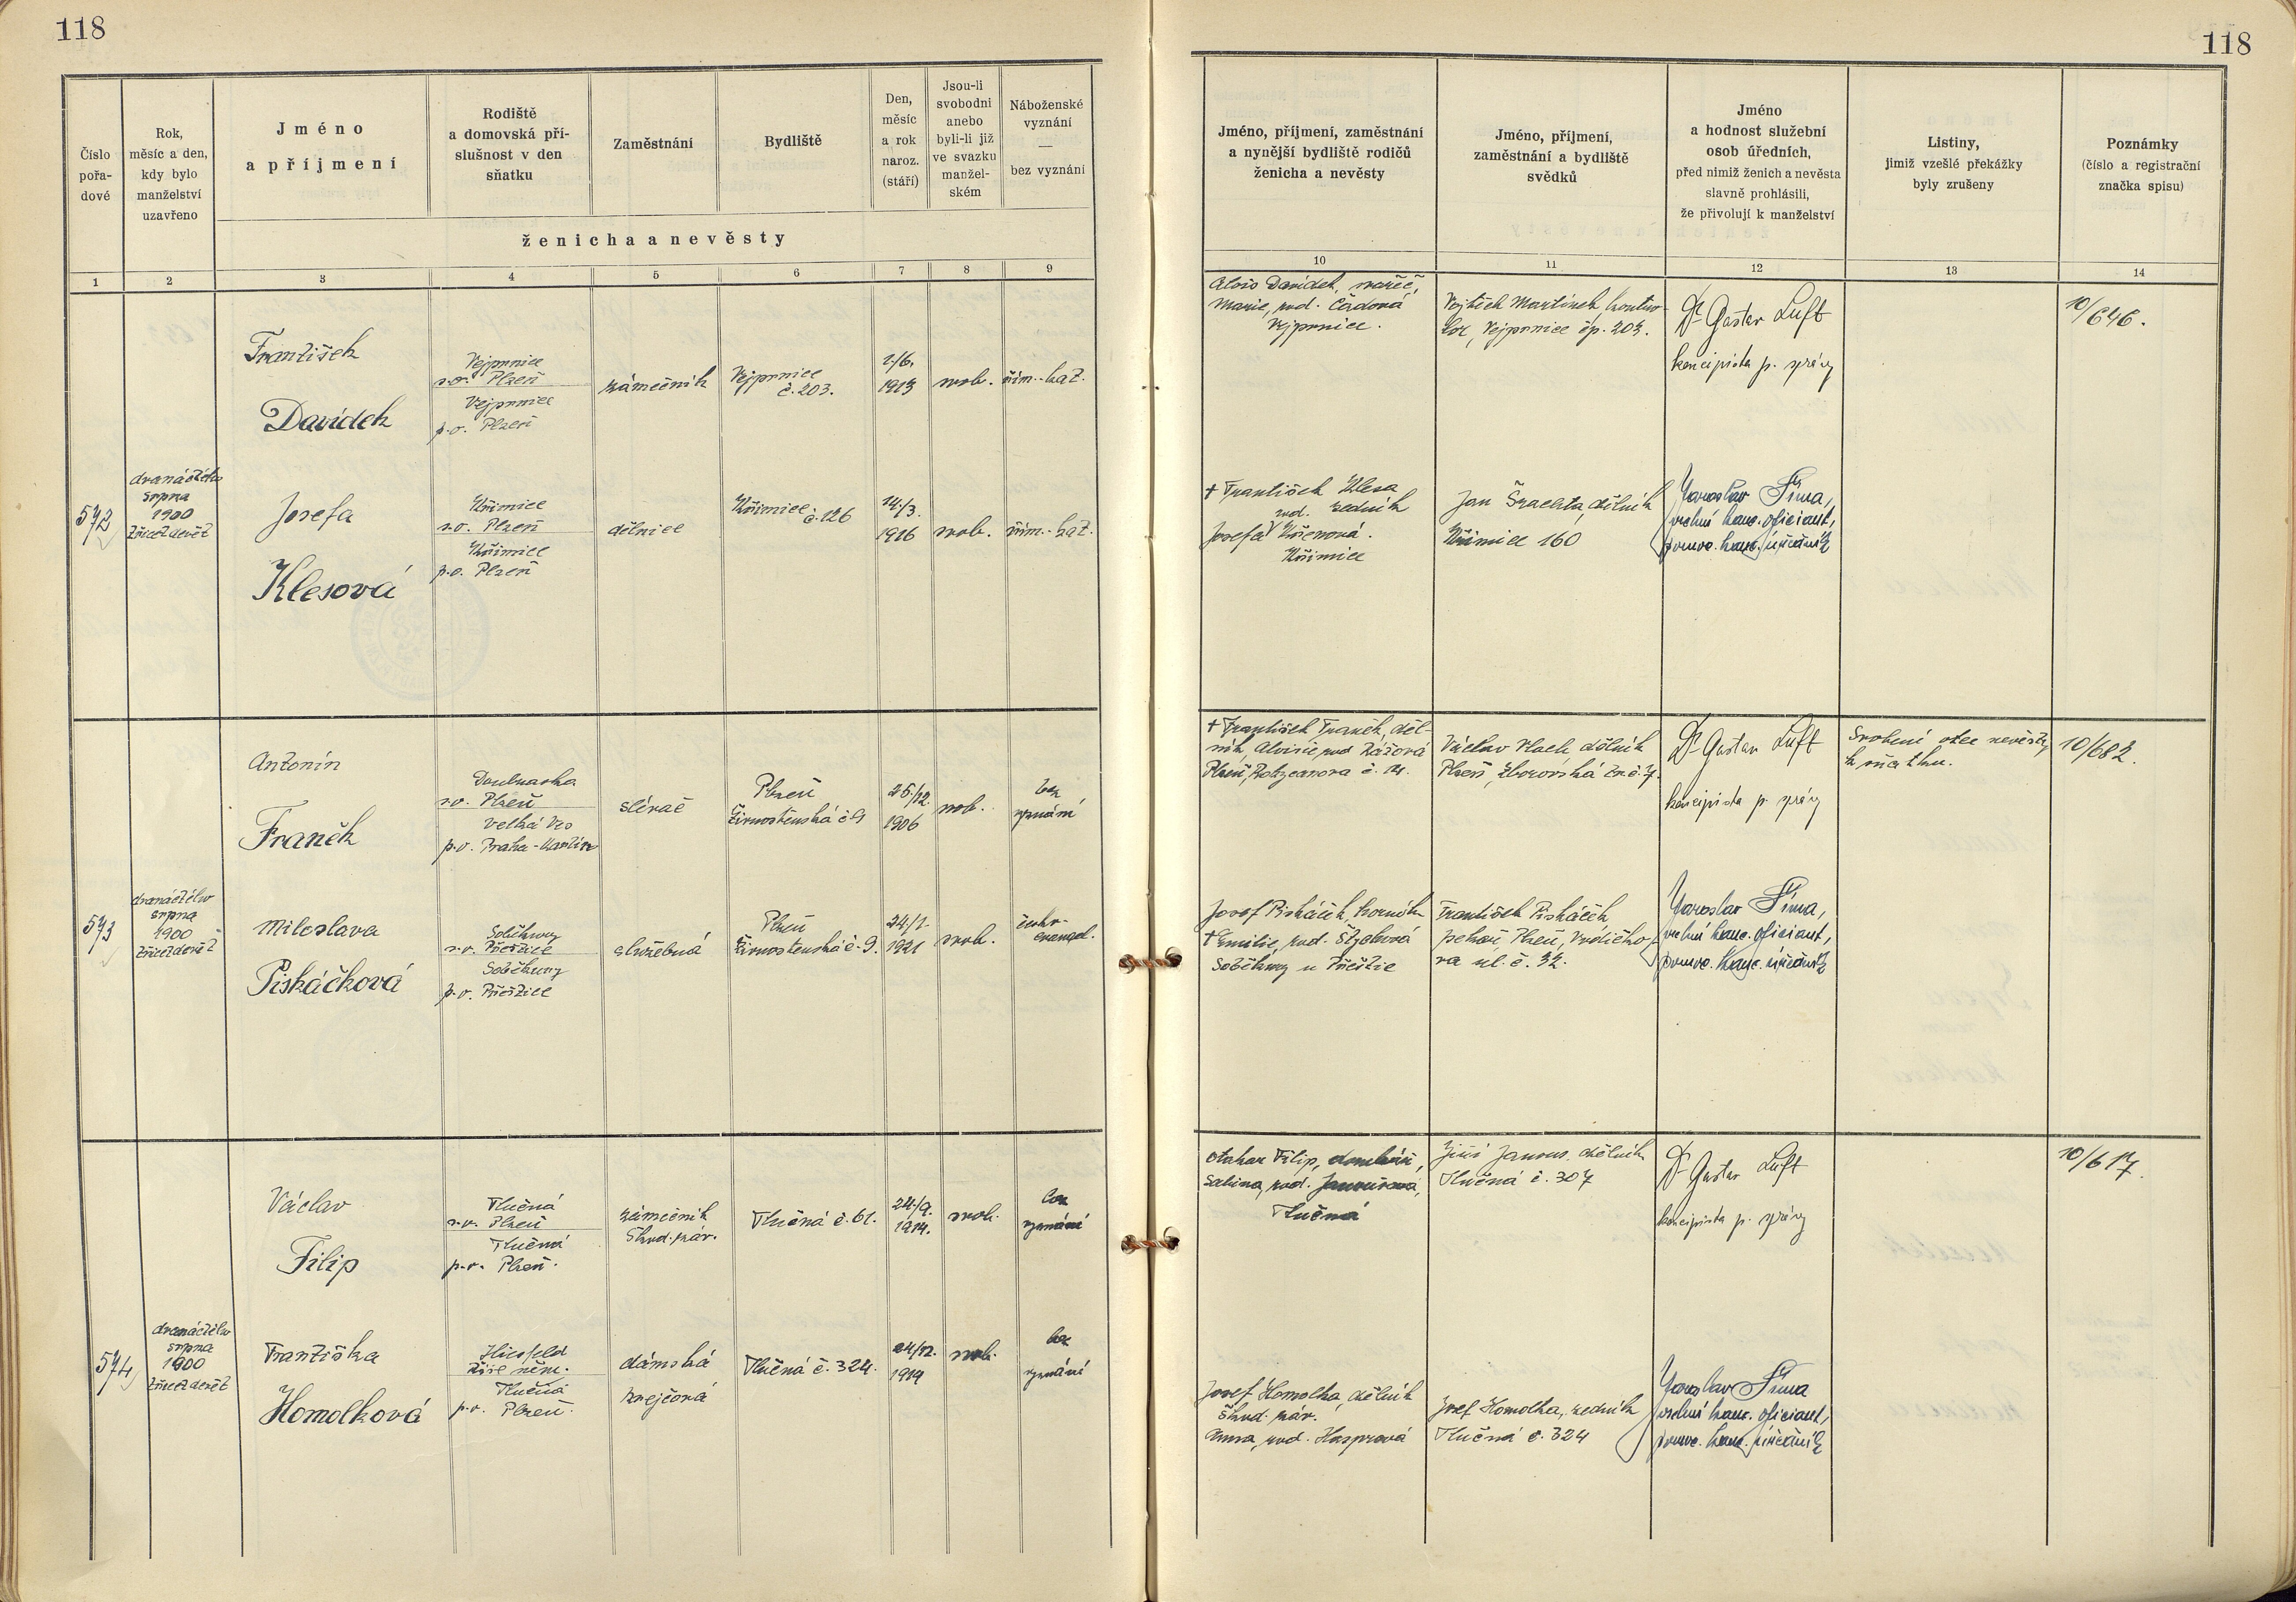 118
118
Číslo
pořa-
dové
Rok,
měsíc a den,
kdy bylo
manželství
uzavřeno
Jméno
a příjmení
Rodiště
a domovská pří-
slušnost v den
sňatku
Zaměstnání
Bydliště
Den,
měsíc
a rok
naroz.
(stáří)
Jsou-li
svobodni
anebo
byli-li již
ve svazku
manžel-
ském
Náboženské
vyznání
—
bez vyznání
ženicha a nevěsty
Jméno, příjmení, zaměstnání
a nynější bydliště rodičů
ženicha a nevěsty
Jméno, příjmení,
zaměstnání a bydliště
svědků
Jméno
a hodnost služební
osob úředních,
před nimiž ženich a nevěsta
slavně prohlásili,
že přivolují k manželství
Listiny,
jimiž vzešlé překážky
byly zrušeny
Poznámky
(číslo a registrační
značka spisu)
1 2 3 4 5 6 7 8 9
10 11 12 13 14
572
dvanáctého
srpna
1900
třicetdevět
František
Davídek
Vejprnice
s.o. Plzeň
Vejprnice
p.o. Plzeň
zámečník
Vejprnice
č. 203.
2./6.
1913
svob.
řím.-kat.
Alois Davídek,
Marie, roz. Čádová
Vejprnice.
Vojtěch Martínek, kontro-
lor, Vejprnice čp. 203.
Dr Gustav Luft
koncipista p. správy
10/646.
Josefa
Klesová
Křimice
s.o. Plzeň
Křimice
p.o. Plzeň
dělnice
Křimice č. 126
14./3.
1916
svob.
řím.-kat.
† František Klesa
zedník
Josefa roz. Křenová.
Křimice
Jan Šlachta, dělník
Křimice 160
Jaroslav Šíma,
vrchní kanc. oficiant,
pomoc. kanc. úředník
573
dvanáctého
srpna
1900
třicetdevět
Antonín
Franěk
Doubravka
s.o. Plzeň
Velká Ves
p.o. Praha-Karlín
slévač
Plzeň
Živnostenská č. 9
25./12.
1906
svob.
bez
vyznání
† František Franěk, děl-
ník, Aloisie roz.
Plzeň, č. 14.
Václav Vlach, dělník
Plzeň, Zborovská tř. č. 7.
Dr Gustav Luft
koncipista p. správy
Svolení otce nevěsty
k sňatku.
10/682.
Miloslava
Piskáčková
Soběkury
s.o. Přeštice
Soběkury
p.o. Přeštice
služebná
Plzeň
Živnostenská č. 9.
24/1.
1921
svob.
česko-
evangel.
Josef Piskáček, horník
† Emilie, roz.
Soběkury u Přeštic
František Piskáček
pekař, Plzeň,
va ul. č. 32.
Jaroslav Šíma,
vrchní kanc. oficiant,
pomoc. kanc. úředník
574
dvanáctého
srpna
1900
třicetdevět
Václav
Filip
Tlučná
s.o. Plzeň
Tlučná
p.o. Plzeň.
zámečník
Škod. záv.
Tlučná č. 61.
24./9.
1914.
svob.
bez
vyznání
Otakar Filip, domkář,
Sabina, roz. Janoušová,
Tlučná
Jiří Janous, dělník
Tlučná č. 307
Dr Gustav Luft
koncipista p. správy
10/617.
Františka
Homolková
říše něm.
Tlučná
p.o. Plzeň.
dámská
krejčová
Tlučná č. 324.
24/12.
1914
svob.
bez
vyznání
Josef Homolka, dělník
Škod. záv.
Anna, roz. Kasprová
Josef Homolka, zedník
Tlučná č. 324
Jaroslav Šíma
vrchní kanc. oficiant,
pomoc. kanc. úředník